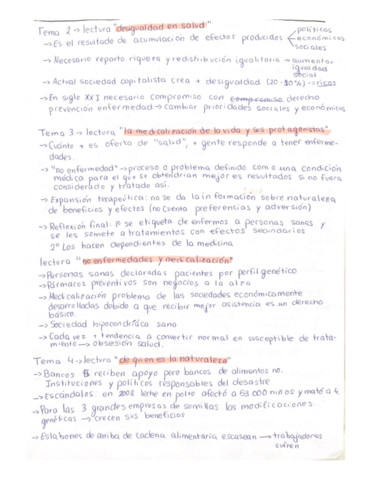 Tema 2 → lectura "desigualdad en salud"
→ Es el resultado de acumulación de efectos producidos
políticos
económicos
sociales
→ Necesario reparto riqueza y redistribución igualitaria → aumentar igualdad social
→ Actual sociedad capitalista crea + desigualdad (20-80%) → ricos
→ En siglo XXI necesario compromiso con derecho
prevención enfermedad → cambiar prioridades sociales y económicas
Tema 3 → lectura "la medicalización de la vida y sus protagonistas"
→ Cuánto + es oferta de "salud", + gente responde a tener enferme-
dades.
→ "no enfermedad" → proceso o problema definido como una condición
médica para el que se obtendrían mejores resultados si no fuera
considerado y tratado así.
→ Expansión terapéutica: no se da la información sobre naturaleza
de beneficios y efectos (no cuenta preferencias y adversión)
→ Reflexión final: 1º se etiqueta de enfermos a personas sanas y
se les somete a tratamientos con efectos secundarios
2º Los hacen dependientes de la medicina
lectura "no enfermedades y medicalización"
→ Personas sanas declaradas pacientes por perfil genético
→ Fármacos preventivos son negocios a la alza
→ Medicalización problema de las sociedades económicamente
desarrolladas debido a que recibir mejor asistencia es un derecho
básico.
→ Sociedad hipocondríaca sana
→ Cada vez + tendencia a convertir normal en susceptible de trata-
miento → obsesión salud.
Tema 4 → lectura "de quien es la naturaleza"
→ Bancos $ reciben apoyo pero bancos de alimentos no.
Instituciones y políticos responsables del desastre
→ Escándalos: en 2008 leche en polvo afectó a 53 000 niños y mató a 4.
→ Para las 3 grandes empresas de semillas las modificaciones
genéticas → crecen sus beneficios
→ Eslabones de arriba de cadena alimentaria escasean → trabajadores
sufren